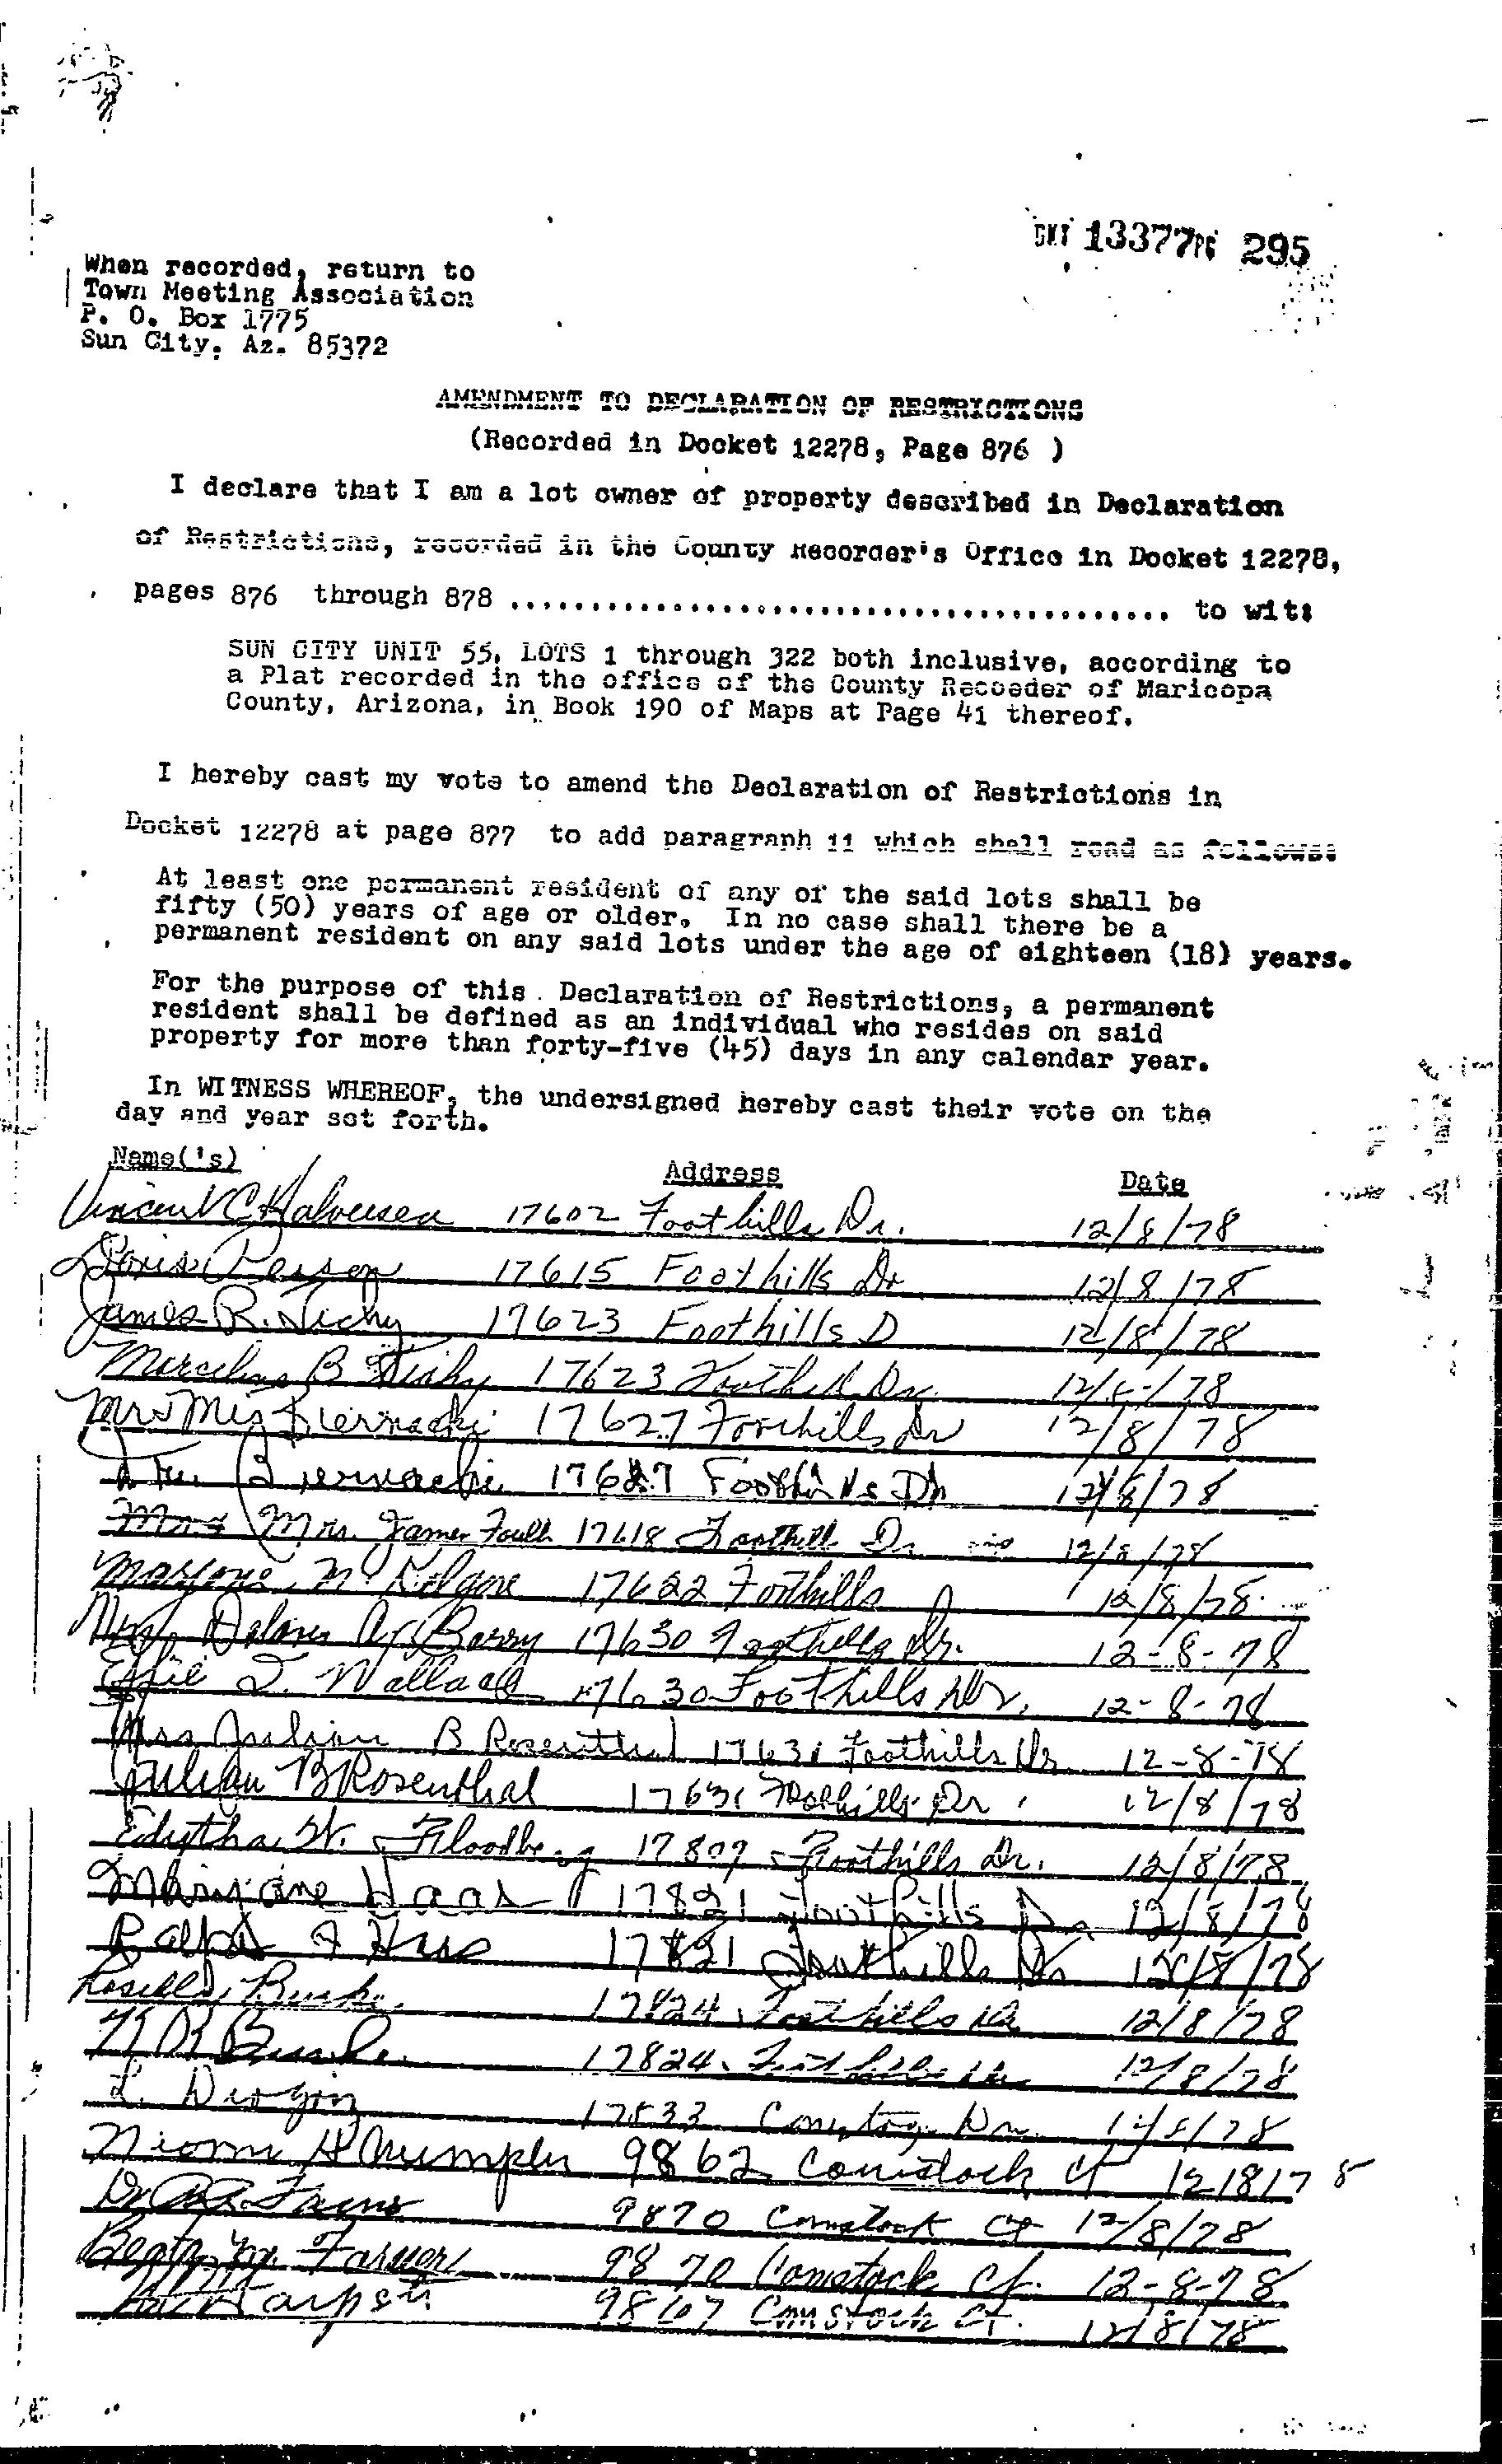 DKT 13377 PG 295
When recorded, return to
Town Meeting Association
P. O. Box 1775
Sun City, Az. 85372
AMENDMENT TO DECLARATION OF RESTRICTIONS
(Recorded in Docket 12278, Page 876 )
I declare that I am a lot owner of property described in Declaration
of Restrictions, recorded in the County Recorder's Office in Docket 12278,
pages 876 through 878 ........................................ to wit:
SUN CITY UNIT 55, LOTS 1 through 322 both inclusive, according to
a Plat recorded in the office of the County Recoeder of Maricopa
County, Arizona, in Book 190 of Maps at Page 41 thereof.
I hereby cast my vote to amend the Declaration of Restrictions in
Docket 12278 at page 877 to add paragraph 11 which shall read as follows:
At least one permanent resident of any of the said lots shall be
fifty (50) years of age or older. In no case shall there be a
permanent resident on any said lots under the age of eighteen (18) years.
For the purpose of this Declaration of Restrictions, a permanent
resident shall be defined as an individual who resides on said
property for more than forty-five (45) days in any calendar year.
In WITNESS WHEREOF, the undersigned hereby cast their vote on the
day and year set forth.
Name('s) Address Date
Vincent C Halvorsen 17602 Foothills Dr. 12/8/78
17615 Foothills Dr 12/8/78
James R. 17623 Foothills D 12/8/78
B 17623 Dr. 12/8/78
17627 Foothills Dr 12/8/78
Biernacki 17627 Foothills Dr 12/8/78
Mrs. James 17618 Foothill Dr 12/8/78
17622 Foothills 12/8/78
Mrs Dolores A. Barry 17630 Foothills Dr. 12-8-78
Effie I. Wallace 17630 Foothills Dr. 12-8-78
Mrs Julian B Rosenthal 17631 Foothills Dr. 12-8-78
Julian B Rosenthal 17631 Foothills Dr. 12/8/78
Edytha W. 17809 Foothills Dr. 12/8/78
Maryjane Haas 17821 Foothills Dr 12/8/78
Ralph J Haas 17821 Foothills Dr 12/8/78
Burke 17824 Foothills Dr 12/8/78
Burke 17824 Foothills Dr 12/8/78
L. Dr. 12/8/78
9862 Comstock Ct 12/8/78
Dr 9870 Comstock Ct 12/8/78
9870 Comstock Ct. 12-8-78
9867 Comstock Ct. 12/8/78